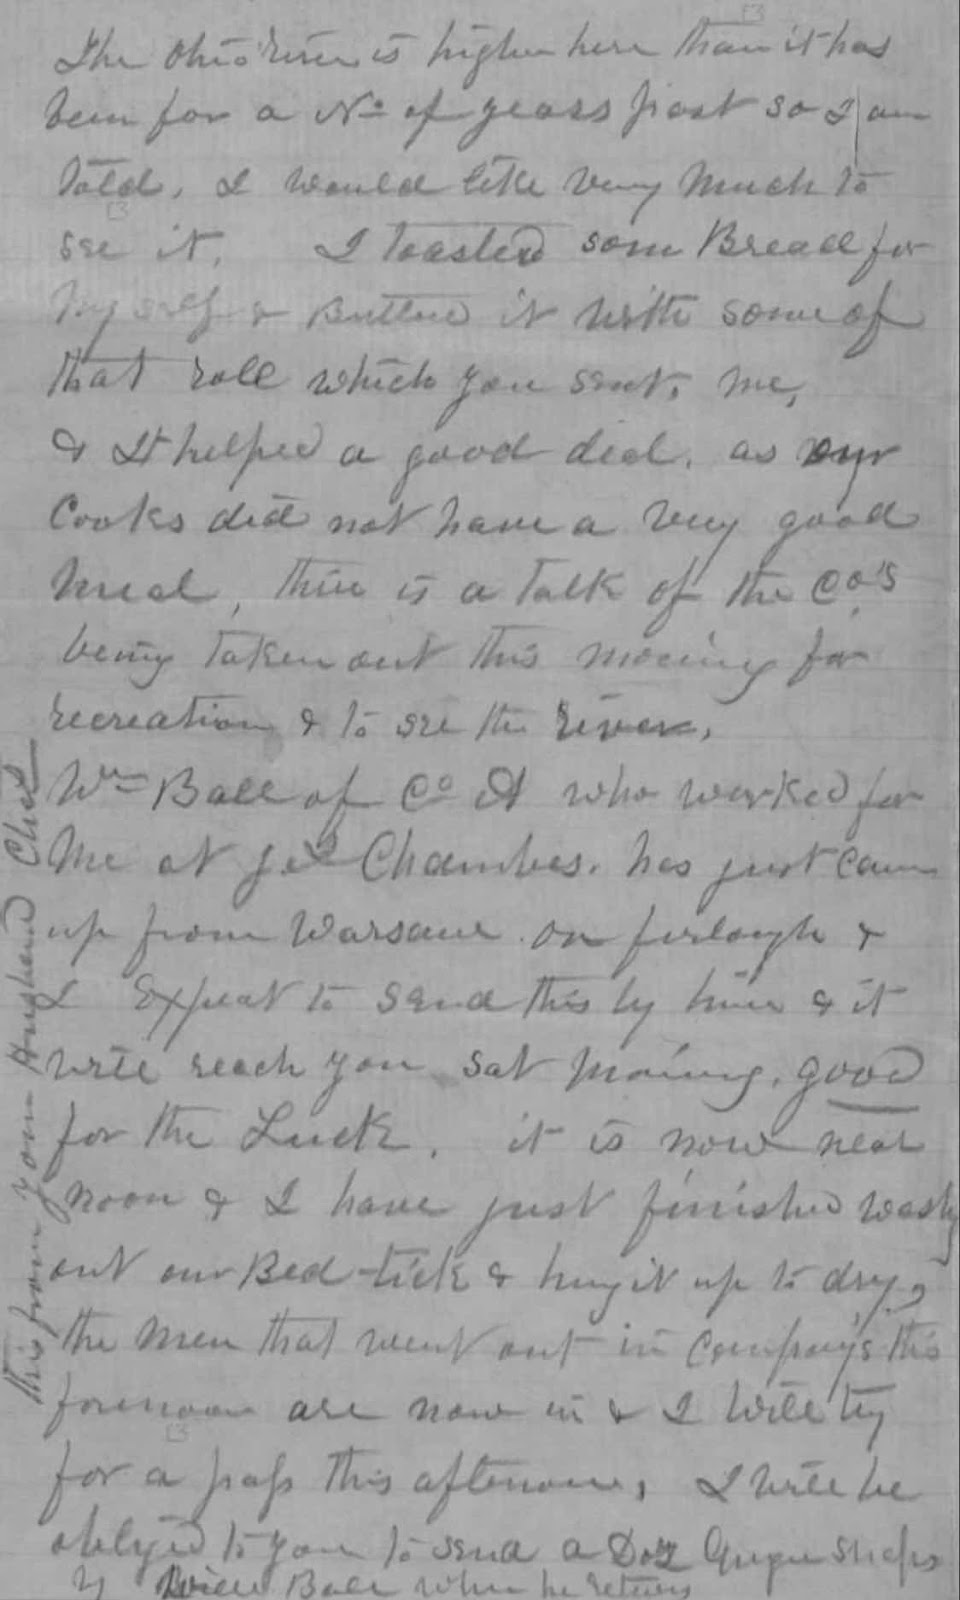 The Ohio River is higher here than it has
been for a No of years past so I am
told, I would like very much to
see it. I toasted some Bread for
myself & Buttered it with some of
that roll which you sent, me,
& It helped a good deal. as our
Cooks did not have a very good
meal, there is a talk of the Co's
being taken out this morning for
recreation & to see the river,
Wm Ball of Co A who worked for
me at Chambes. has just came
up from Warsaw on furlough &
I Expect to send this by him & it
will reach you Sat morning, good
for the Luck, it is now near
noon & I have just finished washg
out our Bed-tick & hung it up to dry,
the men that went out in Compays this
forenoon are now in & I will try
for a pass this afternoon, I will be
obliged to you to send a Doz Ginger snaps
by Ball when he returns
this from your Husband Chas